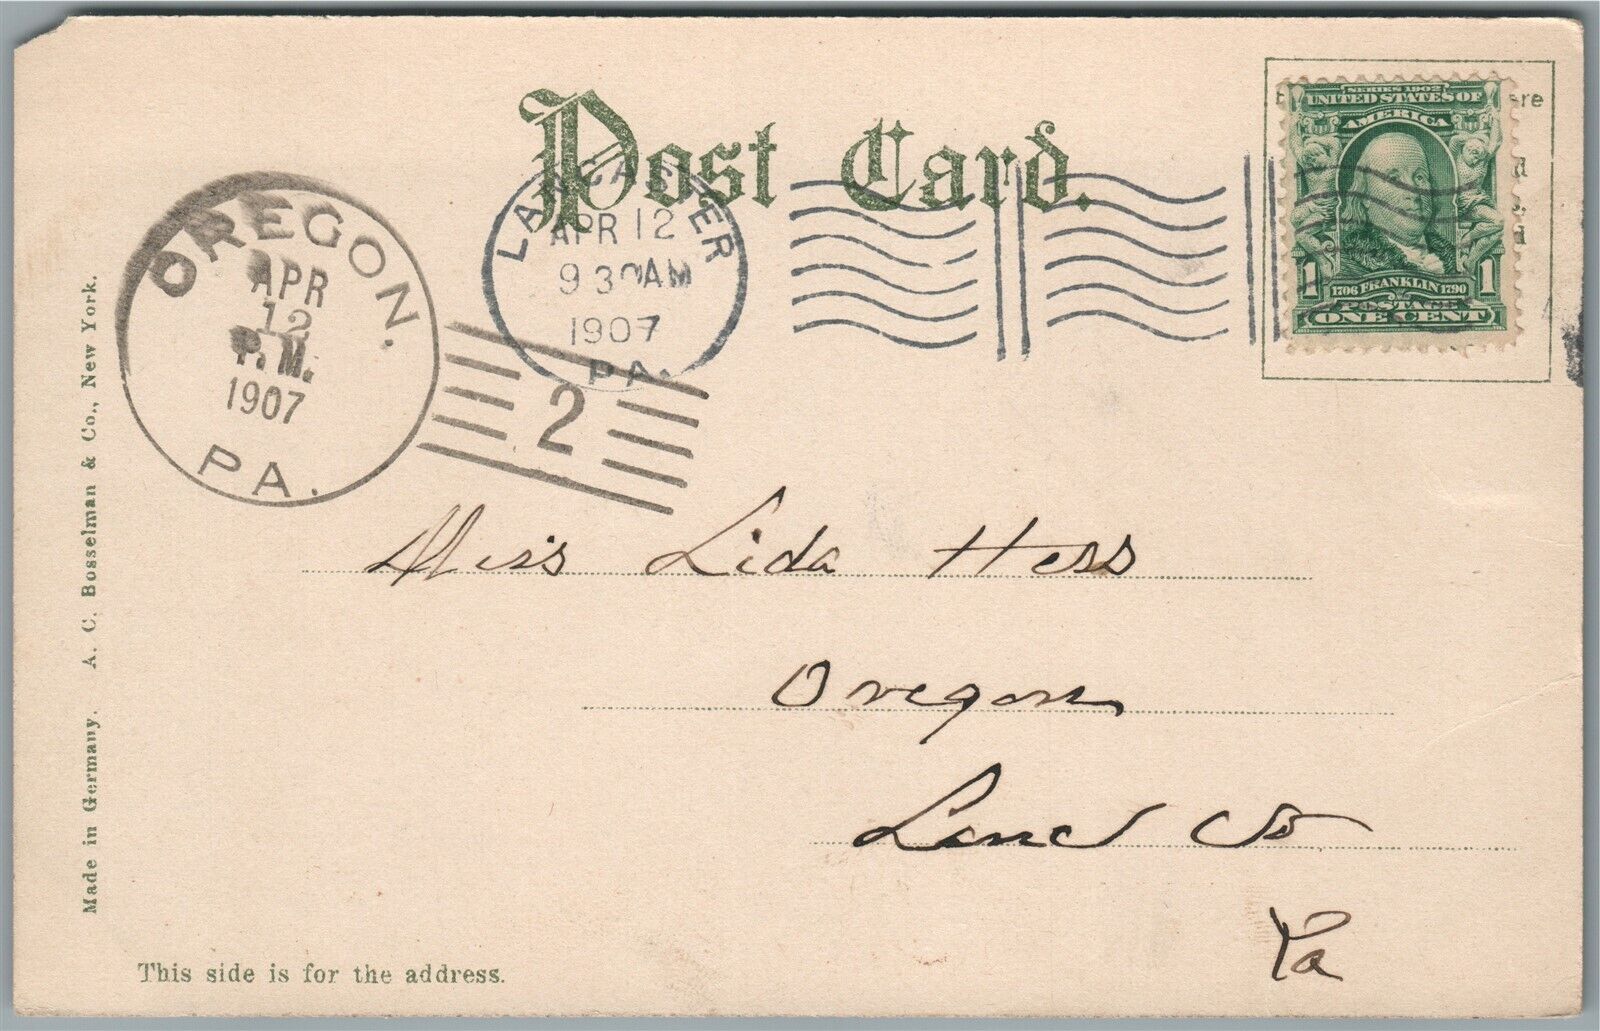 Post Card.
OREGON.
APR
12
P.M.
1907
PA.
2
LANCASTER
APR 12
9 30AM
1907
PA.
ere
SERIES 1902
UNITED STATES OF
AMERICA
1 1
1706 FRANKLIN 1790
POSTAGE
ONE CENT
Miss Lida Hess
Oregon
Lanc Co
Pa
Made in Germany. A. C. Bosselman & Co., New York.
This side is for the address.